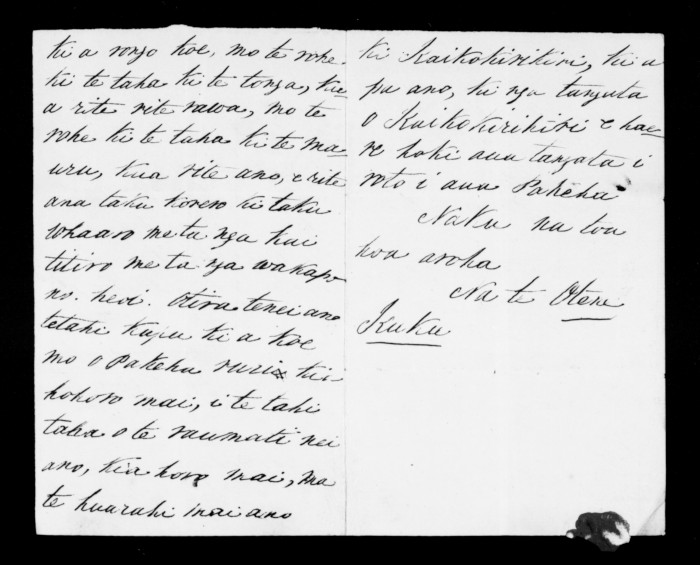 ki a rongo koe, mo te rohe.
ki te taha ki te tonga, kua
a rite rite rawa, mo te
rohe ki te taha ki te ma-
uru, kua rite ano, e rite
ana taku korero ki taku
whaaro me ta nga kai
titiro me ta nga wakapo
no. heoi. Otira tenei ano
tetahi kupu ki a koe
mo o Pakeha ruri kia
hohoro mai, i te tahi
taha o te raumati nei
ano, kia horo mai, ma
te huarahi mai ano
ki Kaikokirikiri, ki a
pa ano, ki nga tangata
o Kaikokirikiri e hae-
re hoki aua tangata i
roto i aua Pakeha
Naku na tou
hoa aroha
Na te Otene
Kuku